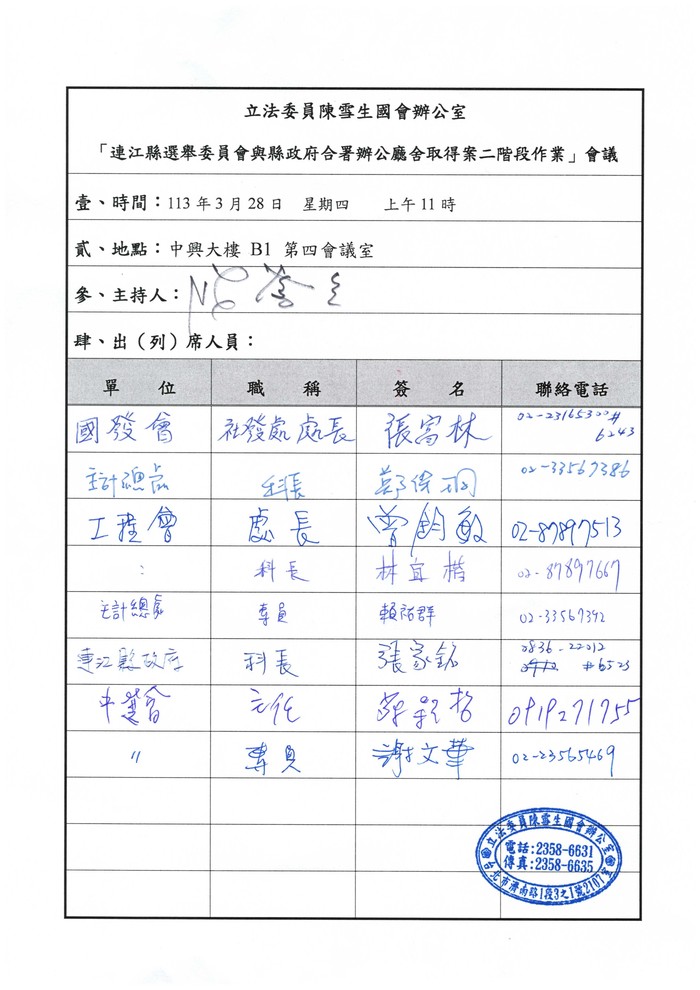 立法委員陳雪生國會辦公室
「連江縣選舉委員會與縣政府合署辦公廳舍取得案二階段作業」會議
壹、時間：113年3月28日 星期四 上午11時
貳、地點：中興大樓 B1 第四會議室
參、主持人：
肆、出（列）席人員：
單位 職稱 簽名 聯絡電話
國發會 社發處處長 張富林 02-23165300#
6243
主計總處 科長 鄭 02-33567386
工程會 處長 曾鈞敏 02-87897513
: 科長 林宜楷 02-87897667
主計總處 專員 賴 群 02-33567392
連江縣政府 科長 張家銘 0836-22012
#6523
中選會 主任 0919271755
〃 專員 謝文華 02-23565469
立法委員陳雪生國會辦公室
電話:2358-6631
傳真:2358-6635
台北市濟南路1段3之1號2107室